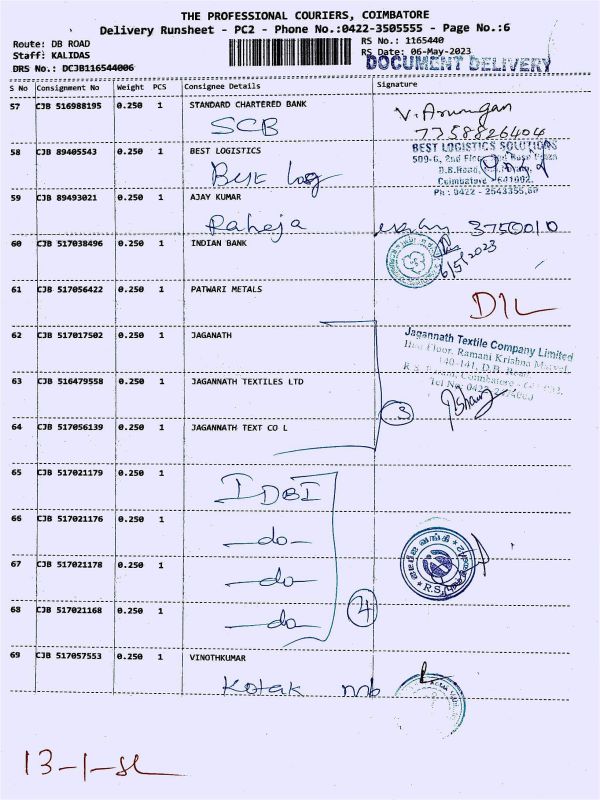 THE PROFESSIONAL COURIERS, COIMBATORE
Delivery Runsheet - PC2 - Phone No.:0422-3505555 - Page No.:6
Route: DB ROAD
Staff: KALIDAS
DRS No.: DCJB116544006
RS No.: 1165440
RS Date: 06-May-2023
DOCUMENT DELIVERY
S No Consignment No Weight PCS Consignee Details Signature
57 CJB 516988195 0.250 1 STANDARD CHARTERED BANK
SCB
V. Arumugan
7358826404
58 CJB 89405543 0.250 1 BEST LOGISTICS
Best log
BEST LOGISTICS SOLUTIONS
509-G, 2nd Floor
D.B.Road,
Coimbatore - 641002.
Ph : 0422 - 2543355,
59 CJB 89493021 0.250 1 AJAY KUMAR
Raheja
3750010
60 CJB 517038496 0.250 1 INDIAN BANK
6/5/2023
61 CJB 517056422 0.250 1 PATWARI METALS
DIL
62 CJB 517017502 0.250 1 JAGANATH
Jagannath Textile Company Limited
Floor, Ramani Krishna
140-141, D.B. Road
Coimbatore
Tel No: 0422
63 CJB 516479558 0.250 1 JAGANNATH TEXTILES LTD
3
64 CJB 517056139 0.250 1 JAGANNATH TEXT CO L
65 CJB 517021179 0.250 1
IDBI
66 CJB 517021176 0.250 1
-do-
67 CJB 517021178 0.250 1
-do-
68 CJB 517021168 0.250 1
-do-
4
R.S.
69 CJB 517057553 0.250 1 VINOTHKUMAR
Kotak mb
13-1-SL